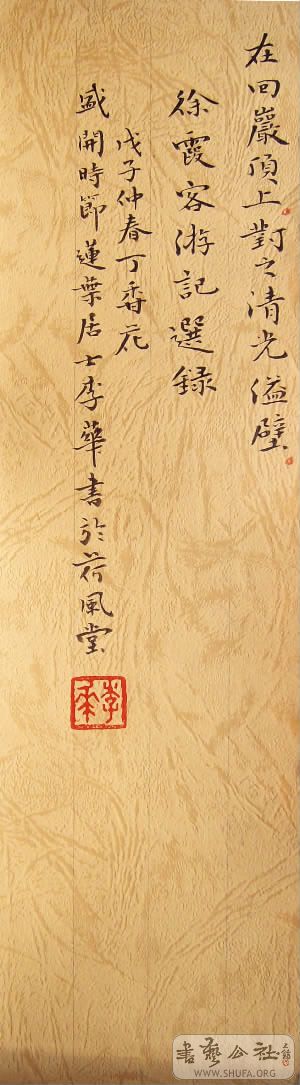 在回巖頂上對之清光溢壁
徐霞客游記選録
戊子仲春丁香花
盛開時節蓮葉居士李華書於荷風堂
李華
書藝公社
WWW.SHUFA.ORG